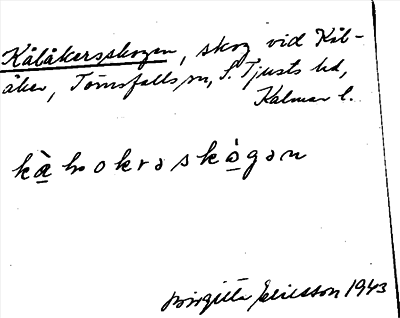 Kålåkersskogen, skog vid Kål-
åker, Törnsfalls sn, S. Tjusts hd,
Kalmar l.
Birgitta Ericsson 1943